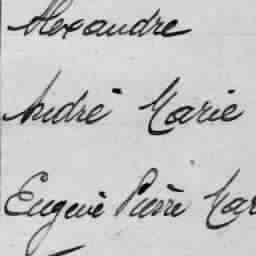 Alexandre
André Marie
Eugène Pierre Mar